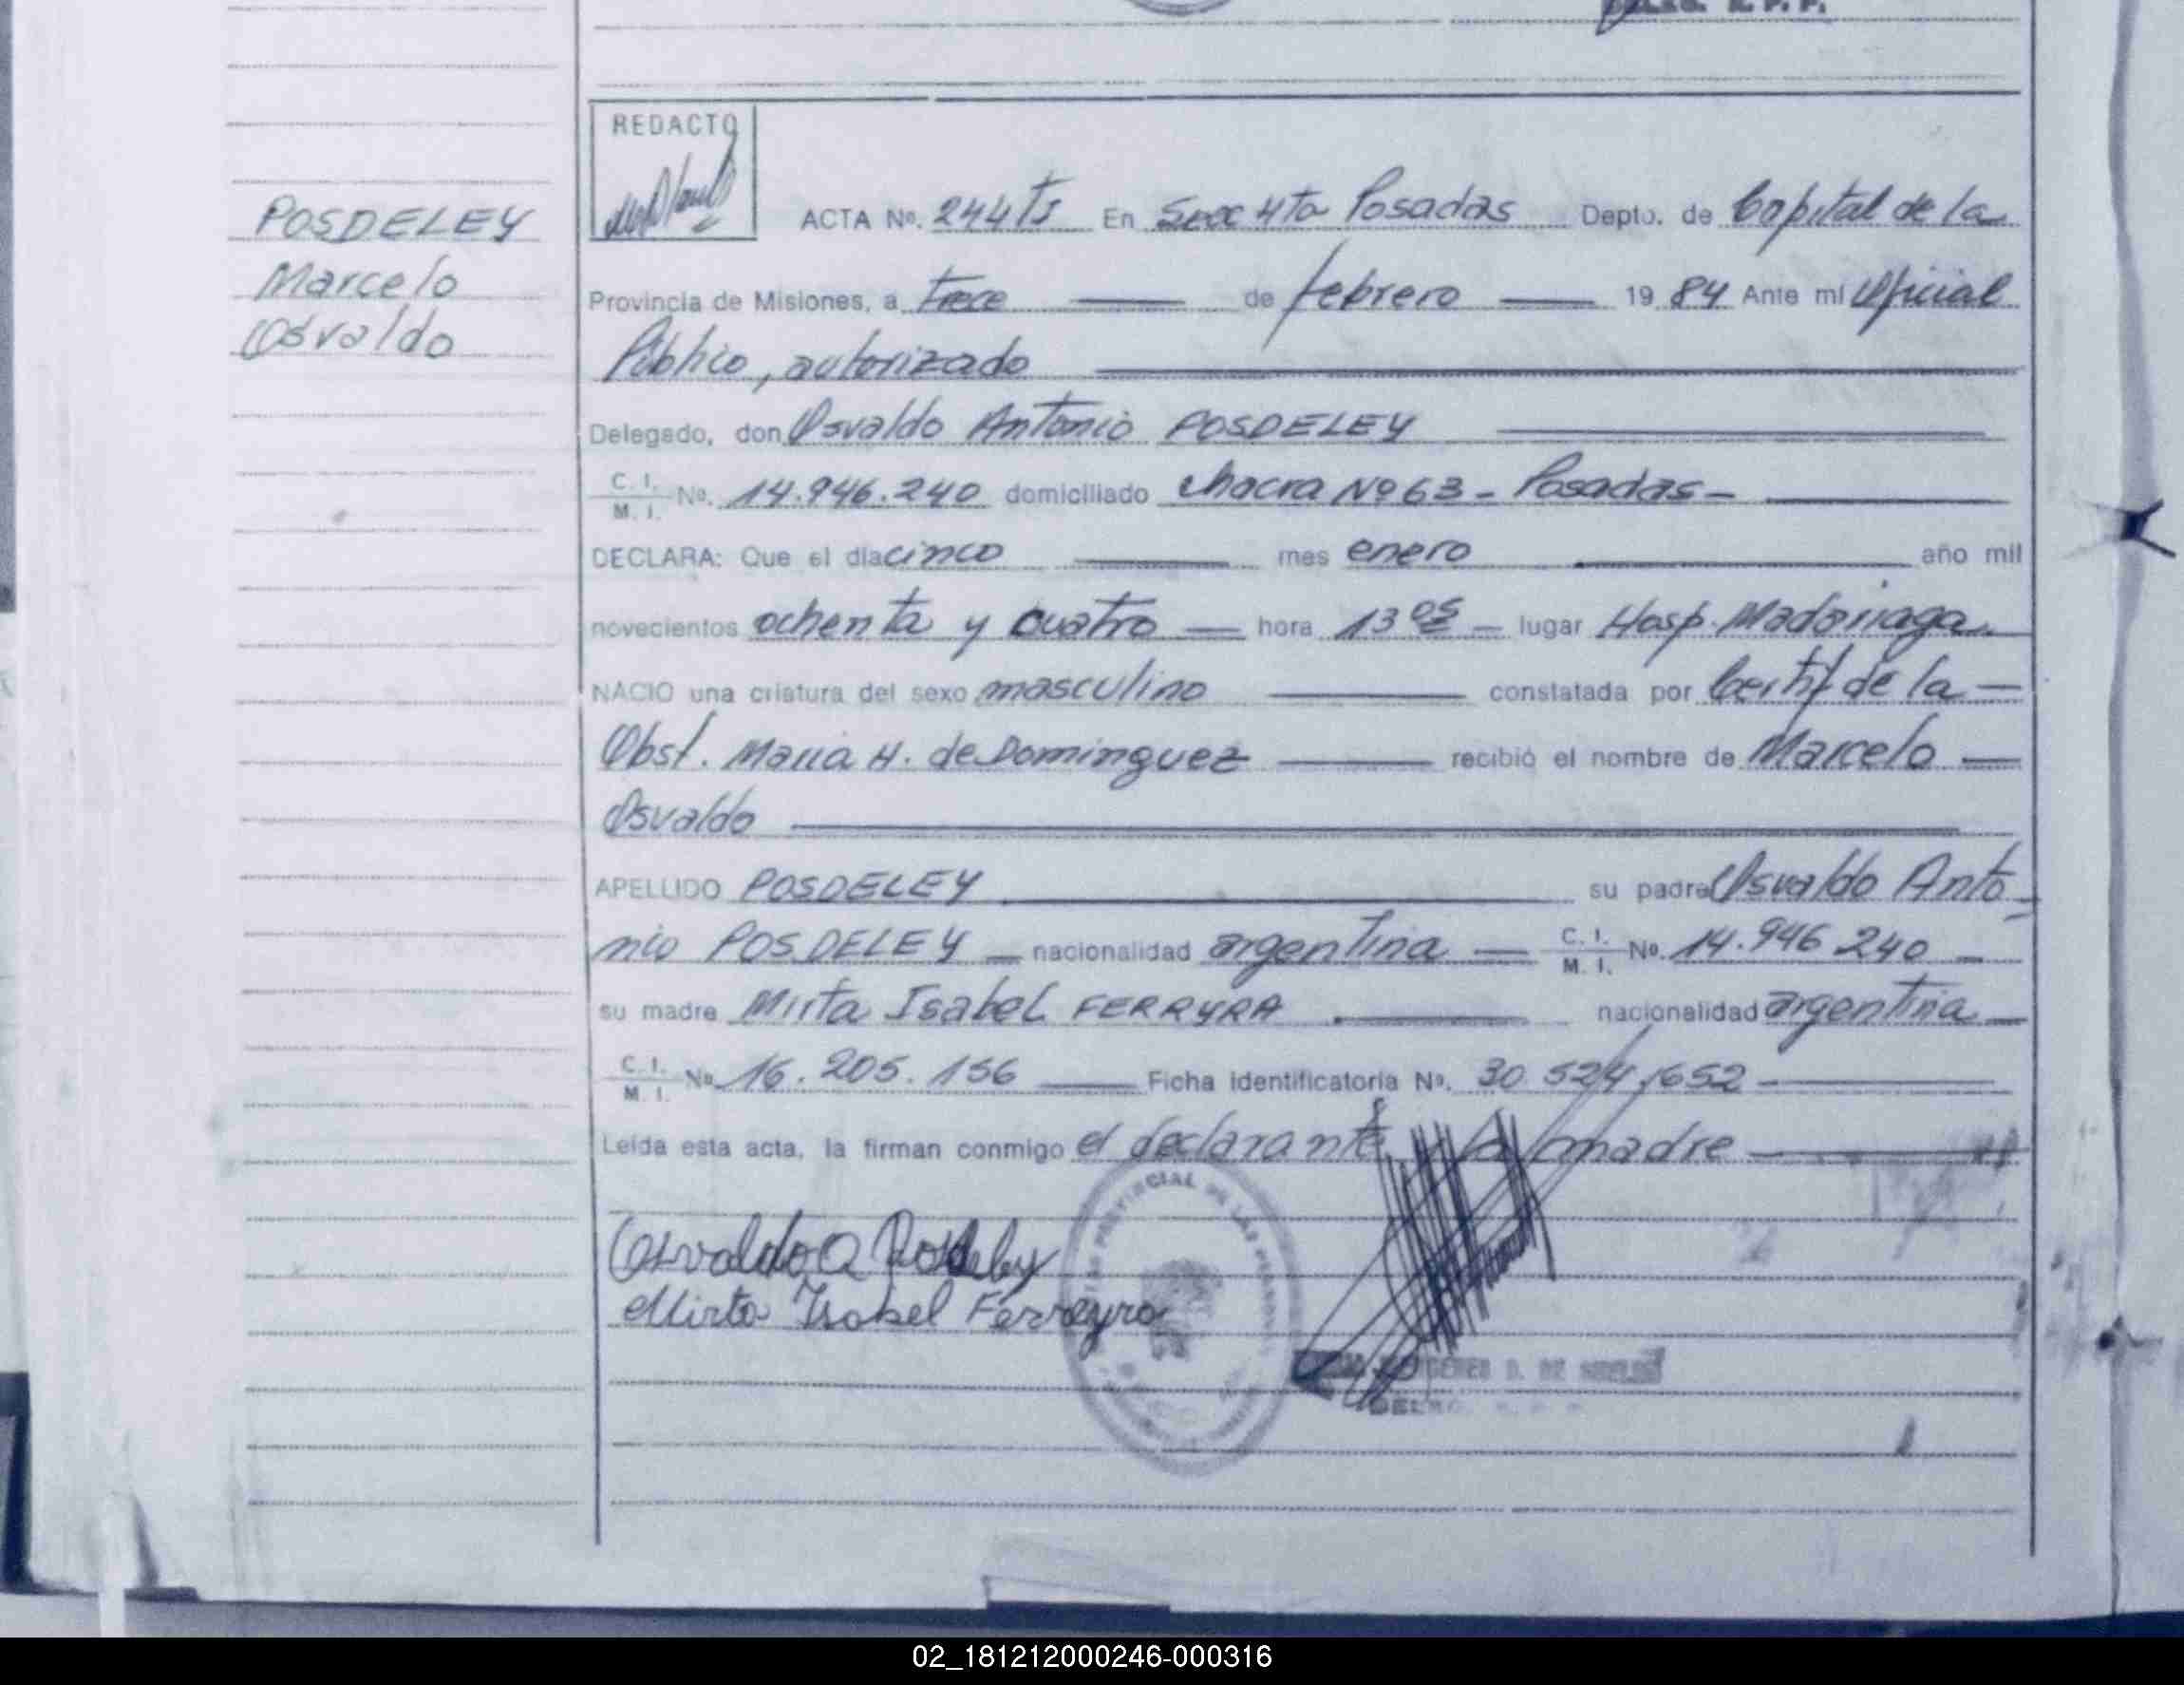 POSDELEY
Marcelo
Osvaldo
REDACTO
ACTA No. 244 Ts En Secc 4ta Posadas Depto. de Capital de la
Provincia de Misiones, a trece de febrero 19 84 Ante mí Oficial
Público, autorizado
Delegado, don Osvaldo Antonio POSDELEY
C. I. M. I. No. 14.946.240 domiciliado chacra Nº 63 - Posadas -
DECLARA: Que el día cinco mes enero año mil
novecientos ochenta y cuatro hora 13 05 lugar Hosp. Madariaga
NACIO una criatura del sexo masculino constatada por Certif de la
Obst. Maria H. de Dominguez recibió el nombre de Marcelo
Osvaldo
APELLIDO POSDELEY su padre Osvaldo Anto
nio POSDELEY nacionalidad argentina C. I. M. I. No. 14.946 240
su madre Mirta Isabel FERRYRA nacionalidad argentina
C. I. M. I. No 16.205.156 Ficha Identificatoria No. 30 524,652
Leída esta acta, la firman conmigo el declarante y la madre
Osvaldo A Posdeley
Mirta Isabel Ferreyra
02_181212000246-000316